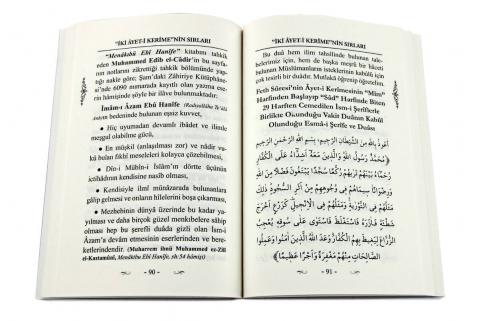 "İKİ ÂYET-İ KERÎME"NİN SIRLARI
"Menâkıbü Ebî Hanîfe" kitabını tahkik
eden Muhammed Edib el-Câdir'in bu sayfa-
nın notlarını zikrettiği tahkik bölümünde yap-
tığı nakle göre; Şam'daki Zâhiriye Kütüphâne-
si'nde 6090 numarada kayıtlı olan yazma ese-
rin hâmişinde şöyle bir ilâve bulunmaktadır:
İmâm-ı Âzam Ebû Hanîfe (Radıyallâhu Te'âlâ
Anh)ın bedeninde bulunan eşsiz kuvvet,
• Hiç uyumadan devamlı ibâdet ve ilimle
meşgul olabilmesi,
• En müşkil (anlaşılması zor) ve nâdir vu-
kû bulan fıkhî meseleleri kolayca çözebilmesi,
• Dîn-i Mübîn-i İslâm'ın dörtte üçünün
ictihâdının kendisine nasîb olması,
• Kendisiyle ilmî münâzarada bulunanlara
gâlip gelmesi ve onların hilelerini boşa çıkarması,
• Mezhebinin dünyâ üzerinde bu kadar ya-
yılması ve daha birçok güzel menkıbelere sâhip
olması hep bu şerefli duâda gizli olan İsm-i
Âzam'a devâm etmesinin eserlerinden ve bere-
ketlerindendir. (Muharrem ibnü Muhammed ez-Zîlî
el-Kastamûnî, Menâkıbu Ebî Hanîfe, sh:54 hâmişi)
- 90 -
"İKİ ÂYET-İ KERÎME"NİN SIRLARI
Bu duâ hem ilim tahsîlinde bulunan tale-
belerimiz için, hem de başka meşrû bir hâceti
bulunan Müslümanların isteklerinin kabûlü için
çok tesirli bir duâdır. Mutlakâ öğrenip öğretelim.
Feth Sûresi'nin Âyet-i Kerîmesinin "Mîm"
Harfinden Başlayıp "Sâd" Harfinde Biten
29 Harften Cemedilen İsm-i Şerîflerle
Birlikte Okunduğu Vakit Duânın Kabûl
Olunduğu Esmâ-i Şerîfe ve Duâsı
أَعُوذُ بِاللهِ مِنَ الشَّيْطَانِ الرَّجِيمِ، بِسْمِ اللهِ الرَّحْمٰنِ الرَّحِيمِ
﴿مُحَمَّدٌ رَسُولُ اللهِ وَالَّذِينَ مَعَهُ أَشِدَّاءُ عَلَى الْكُفَّارِ
رُحَمَاءُ بَيْنَهُمْ تَرَاهُمْ رُكَّعًا سُجَّدًا يَبْتَغُونَ فَضْلًا مِنَ اللهِ
وَرِضْوَانًا سِيمَاهُمْ فِي وُجُوهِهِمْ مِنْ أَثَرِ السُّجُودِ ذٰلِكَ
مَثَلُهُمْ فِي التَّوْرَيةِ وَمَثَلُهُمْ فِي الْإِنْجِيلِ كَزَرْعٍ أَخْرَجَ
شَطْئَهُ فَآزَرَهُ فَاسْتَغْلَظَ فَاسْتَوَى عَلَى سُوقِهِ يُعْجِبُ
الزُّرَّاعَ لِيَغِيظَ بِهِمُ الْكُفَّارَ وَعَدَ اللهُ الَّذِينَ آمَنُوا وَعَمِلُوا
الصَّالِحَاتِ مِنْهُمْ مَغْفِرَةً وَأَجْرًا عَظِيمًا﴾
- 91 -